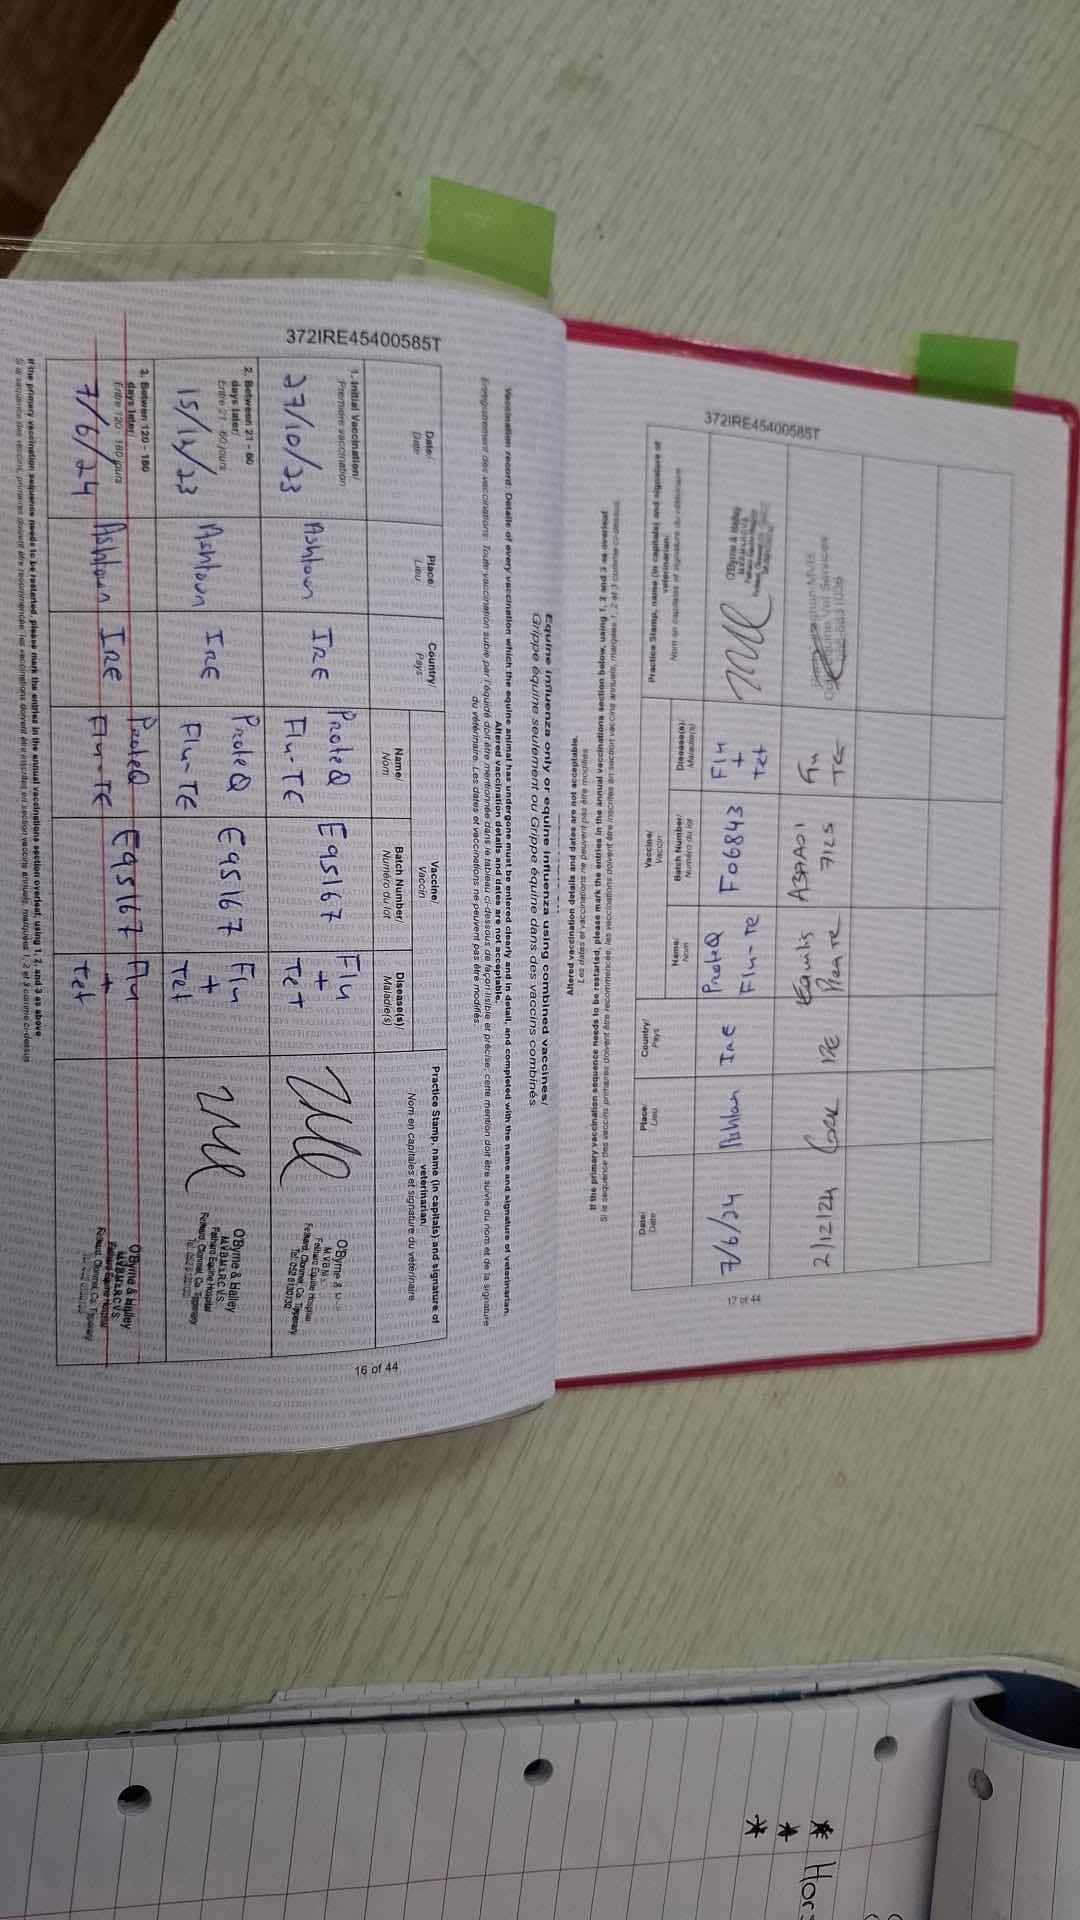 372IRE45400585T
Equine influenza only or equine influenza using combined vaccines/
Grippe équine seulement ou Grippe équine dans des vaccins combinés
Vaccination record: Details of every vaccination which the equine animal has undergone must be entered clearly and in detail, and completed with the name and signature of veterinarian.
Altered vaccination details and dates are not acceptable.
Enregistrement des vaccinations: Toute vaccination subie par l'équidé doit être mentionnée dans le tableau ci-dessous de façon lisible et précise, cette mention doit être suivie du nom et de la signature
du vétérinaire. Les dates et vaccinations ne peuvent pas être modifiés
Date/
Date
Place/
Lieu
Country/
Pays
Vaccine/
Vaccin
Name/
Nom
Batch Number/
Numéro du lot
Disease(s)/
Maladie(s)
Practice Stamp, name (in capitals) and signature of
veterinarian/
Nom en capitales et signature du vétérinaire
1. Initial Vaccination/
Première vaccination
27/10/23
Ashtown
IRE
ProteQ
Flu-TE
Eqs167
Flu
+
TeT
O'Byrne &
M.V.B.M.
Fethard Equine Hospital
Fethard, Clonmel, Co. Tipperary
Tel: 052 6130132
2. Between 21 - 60
days later/
Entre 21 - 60 jours
15/12/23
Ashtown
IRE
ProteQ
Flu-TE
Eqs167
Flu
+
Tet
O'Byrne & Halley
M.V.B.M.R.C.V.S.
Fethard Equine Hospital
Fethard, Clonmel, Co. Tipperary
3. Betwen 120 - 180
days later/
Entre 120 - 180 jours
7/6/24
Ashtown
IRE
ProteQ
Flu-TE
Eqs167
Flu
+
Tet
O'Byrne & Halley
M.V.B.M.R.C.V.S.
Fethard Equine Hospital
Fethard, Clonmel, Co. Tipperary
If the primary vaccination sequence needs to be restarted, please mark the entries in the annual vaccinations section overleaf, using 1, 2, and 3 as above
Si la séquence des vaccins primaires doivent être recommencée, les vaccinations doivent être inscrites en section vaccins annuels, marquées 1, 2 et 3 comme ci-dessus
16 of 44
372IRE45400585T
Altered vaccination details and dates are not acceptable.
Les dates et vaccinations ne peuvent pas être modifiés
If the primary vaccination sequence needs to be restarted, please mark the entries in the annual vaccinations section below, using 1, 2 and 3 as overleaf
Si la séquence des vaccins primaires doivent être recommencée, les vaccinations doivent être inscrites en section vaccins annuels, marquées 1, 2 et 3 comme ci-dessus
Date/
Date
Place/
Lieu
Country/
Pays
Vaccine/
Vaccin
Name/
Nom
Batch Number/
Numéro du lot
Disease(s)/
Maladie(s)
Practice Stamp, name (in capitals) and signature of
veterinarian/
Nom en capitales et signature du vétérinaire
7/6/24
Ashtown
Ire
ProteQ
Flu-Te
F06843
Flu
+
Tet
O'Byrne & Halley
2/12/24
Cork
IRE
Equilis
Prequenza Te
A381A01
7125
Flu
TE
MVB
Equine Vet Services
17 of 44
* Hors
*
*